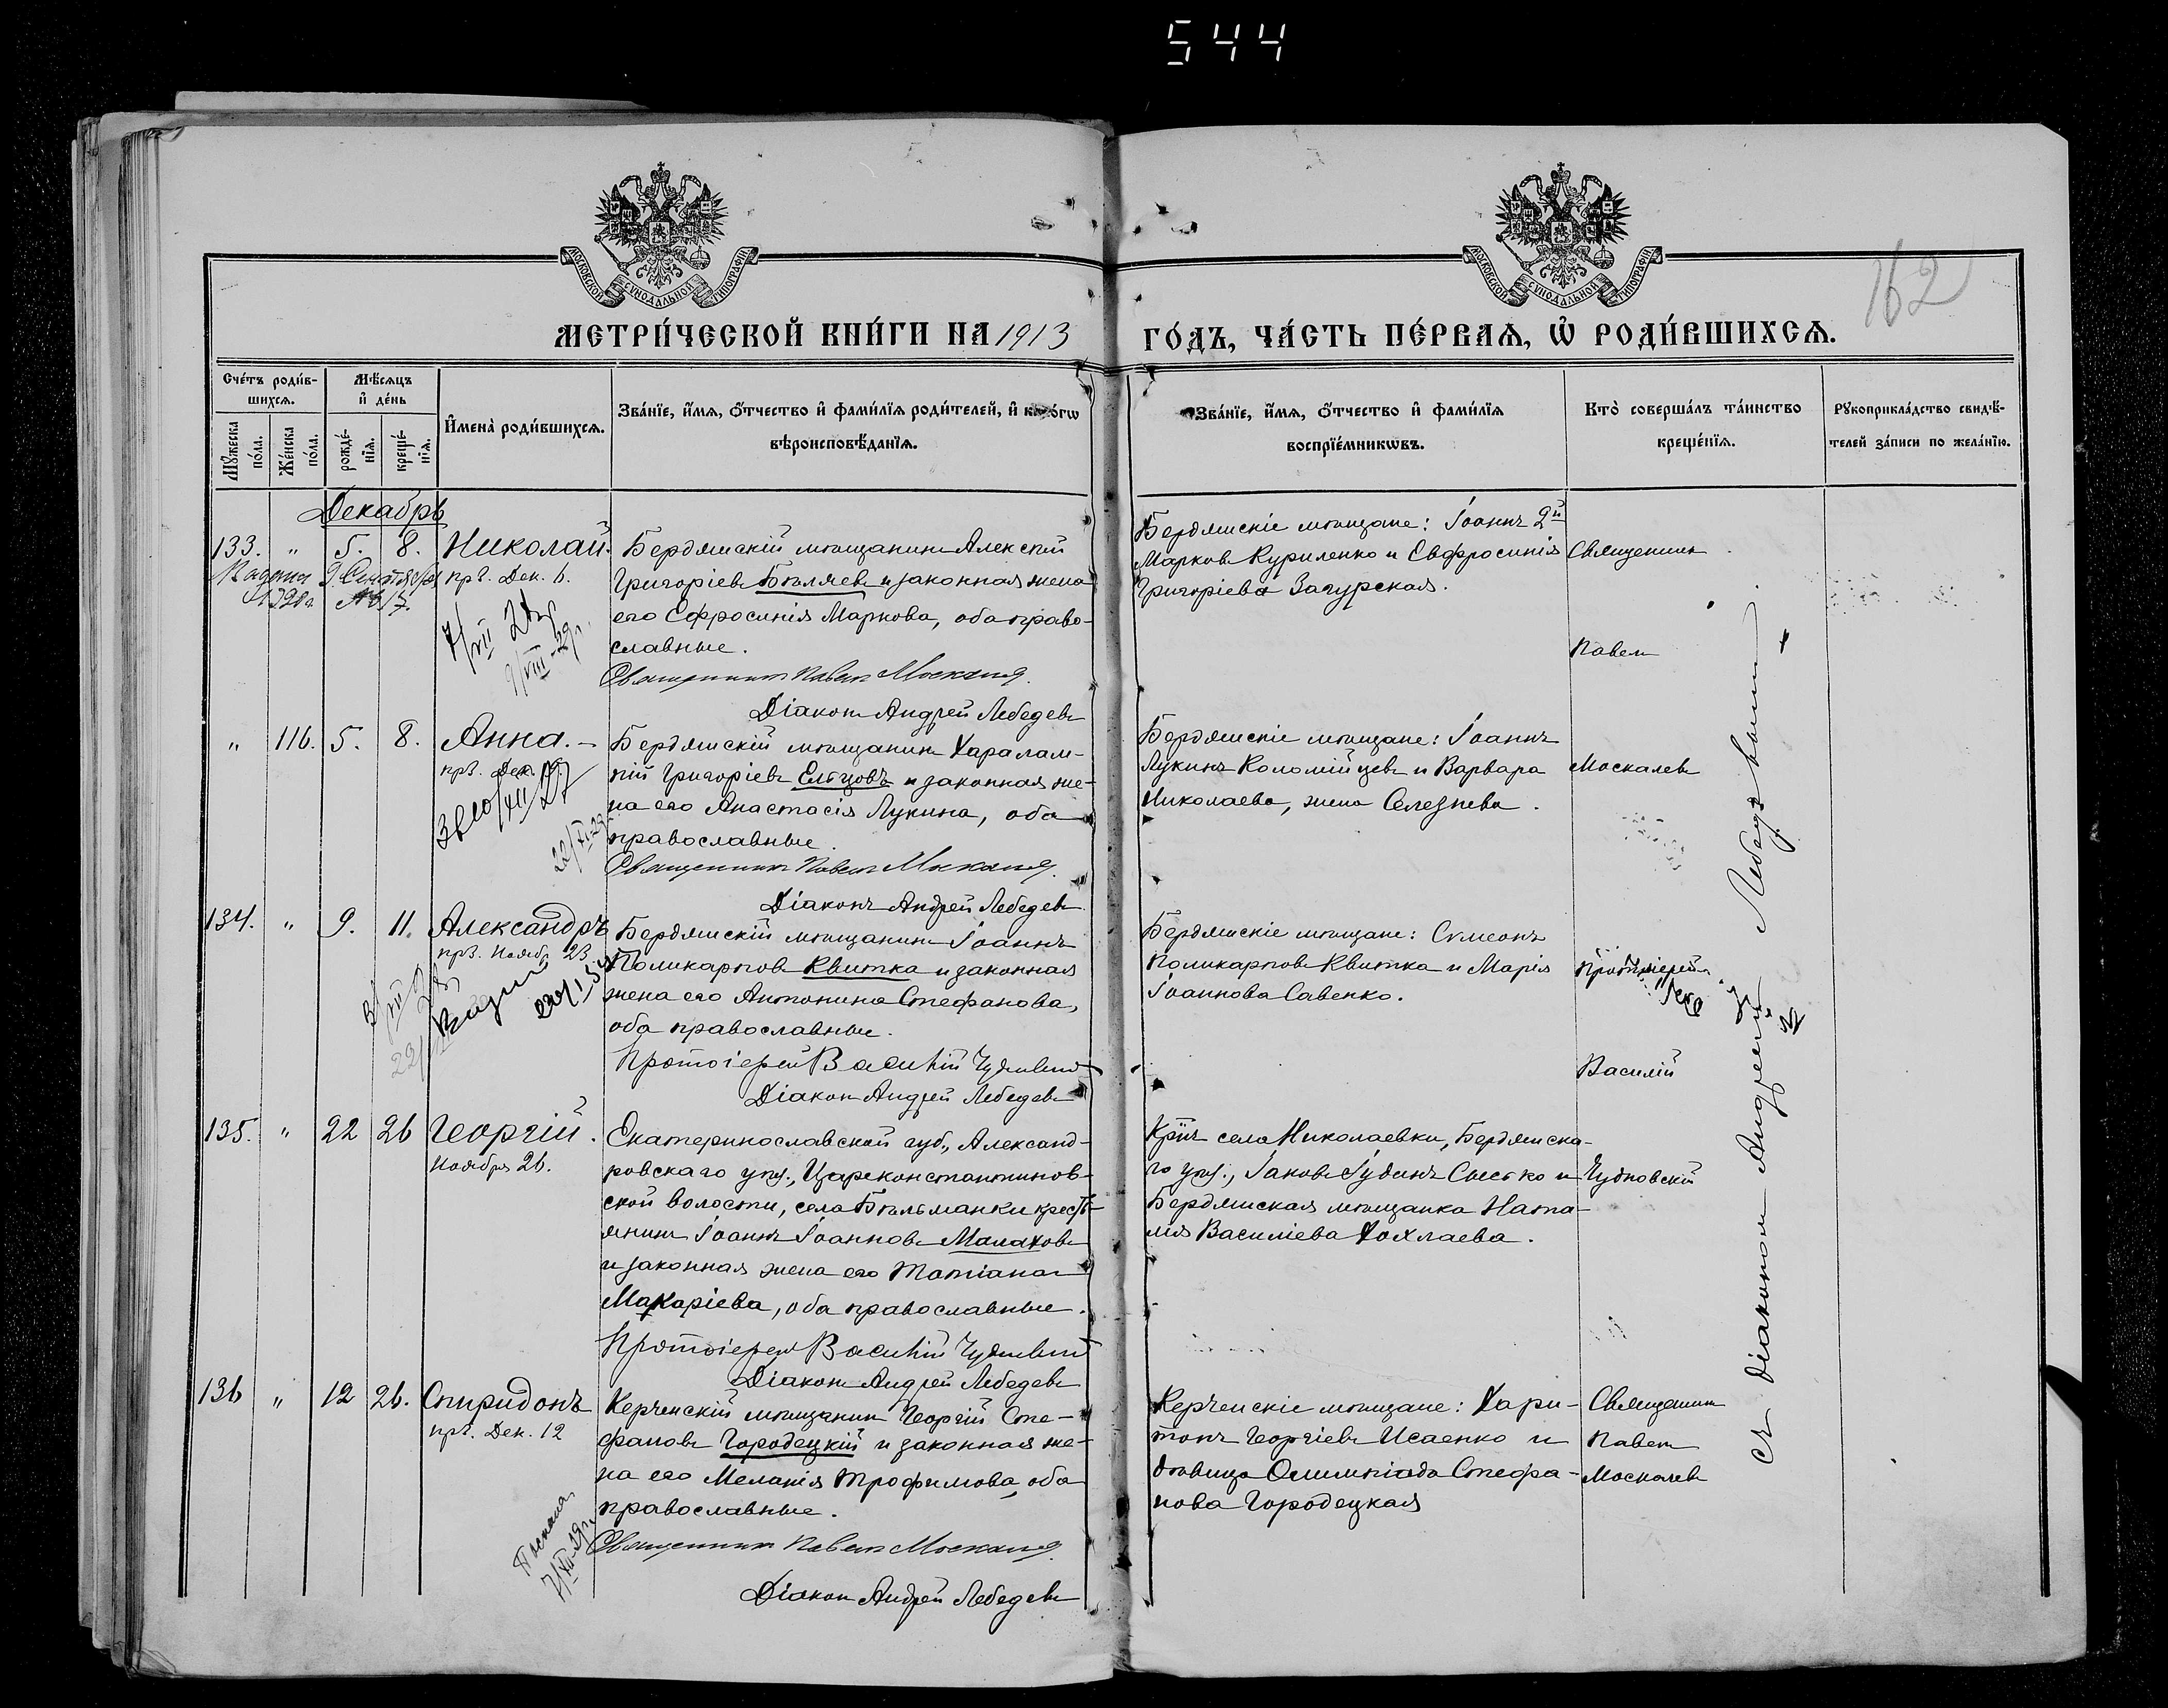 544
МОСКОВСКОЙ СѴНОДАЛЬНОЙ ТИПОГРАФІИ
МОСКОВСКОЙ СѴНОДАЛЬНОЙ ТИПОГРАФІИ
162
МЕТРИ́ЧЕСКОЙ КНИ́ГИ НА 1913 ГО́ДЪ, ЧА́СТЬ ПЕ́РВАѦ, Ѽ РОДИ́ВШИХСѦ.
Сче́тъ роди́в-
шихсѧ.
Мꙋ́жеска по́ла.
Же́нска по́ла.
Мѣ́сѧцъ
и҆ де́нь
рожде́-
нїѧ.
креще́-
нїѧ.
И҆мена̀ роди́вшихсѧ.
Зва́нїе, и҆́мѧ, ѻ҆́тчество и҆ фами́лїѧ роди́телей, и҆ како́гѡ
вѣроисповѣ́данїѧ.
Зва́нїе, и҆́мѧ, ѻ҆́тчество и҆ фами́лїѧ
воспрїе́мникѡвъ.
Кто̀ соверша́лъ та́инство
креще́нїѧ.
Рꙋкоприкла́дство свидѣ́-
телей за́писи по жела́нїю.
Декабрь
133. " 5. 8. Николай.
пр. Дек. 6.
Бердянскій мѣщанинъ Алексѣй
Григоріевъ Бѣляевъ и законная жена
его Ефросинія Маркова, оба право-
славные.
Священникъ Павелъ Москалев
Діаконъ Андрей Лебедевъ
Бердянскіе мѣщане: Іоаннъ 2й
Марковъ Куриленко и Евфросинія
Григоріева Загурская.
Священникъ
Павелъ
" 116. 5. 8. Анна. –
пр. Дек.
10/XII 27
22/XI-29
Бердянскій мѣщанинъ Харалам-
пій Григоріевъ Ельцовъ и законная же-
на его Анастасія Лукина, оба
православные.
Священникъ Павелъ Москалев
Діаконъ Андрей Лебедевъ
Бердянскіе мѣщане: Іоаннъ
Лукинъ Коломійцевъ и Варвара
Николаева, жена Селезнева.
Москалевъ
134. " 9. 11. Александръ
пр. Ноябр. 23.
Бердянскій мѣщанинъ Іоаннъ
Поликарповъ Квитка и законная
жена его Антонина Стефанова,
оба православные.
Протоіерей Василій Чудновскій
Діаконъ Андрей Лебедевъ
Бердянскіе мѣщане: Симеонъ
Поликарповъ Квитка и Марія
Іоаннова Савенко.
Протоіерей
Василій
135. " 22 26 Георгій.
Ноября 26.
Екатеринославской губ., Александ-
ровскаго уѣз., Цареконстантинов-
ской волости, села Бѣльманки кресть-
янинъ Іоаннъ Іоанновъ Малаховъ
и законная жена его Татіана
Макаріева, оба православные.
Протоіерей Василій Чудновскій
Діаконъ Андрей Лебедевъ
Кр-нъ села Николаевки, Бердянска-
го уѣз., Іаковъ Іудинъ и
Бердянская мѣщанка Ната-
лія Василіева Хохлаева.
Чудновскій
136 " 12 26. Спиридонъ
пр. Дек. 12
Керченскій мѣщанинъ Георгій Сте-
фановъ Городецкій и законная же-
на его Меланія Трофимова, оба
православные.
Священникъ Павелъ Москалев
Діаконъ Андрей Лебедевъ
Керченскіе мѣщане: Хари-
тонъ Георгіевъ Исаенко и
дѣвица Олимпіада Стефа-
нова Городецкая
Священникъ
Павелъ
Москалевъ
съ діакономъ Андреемъ Лебедевымъ